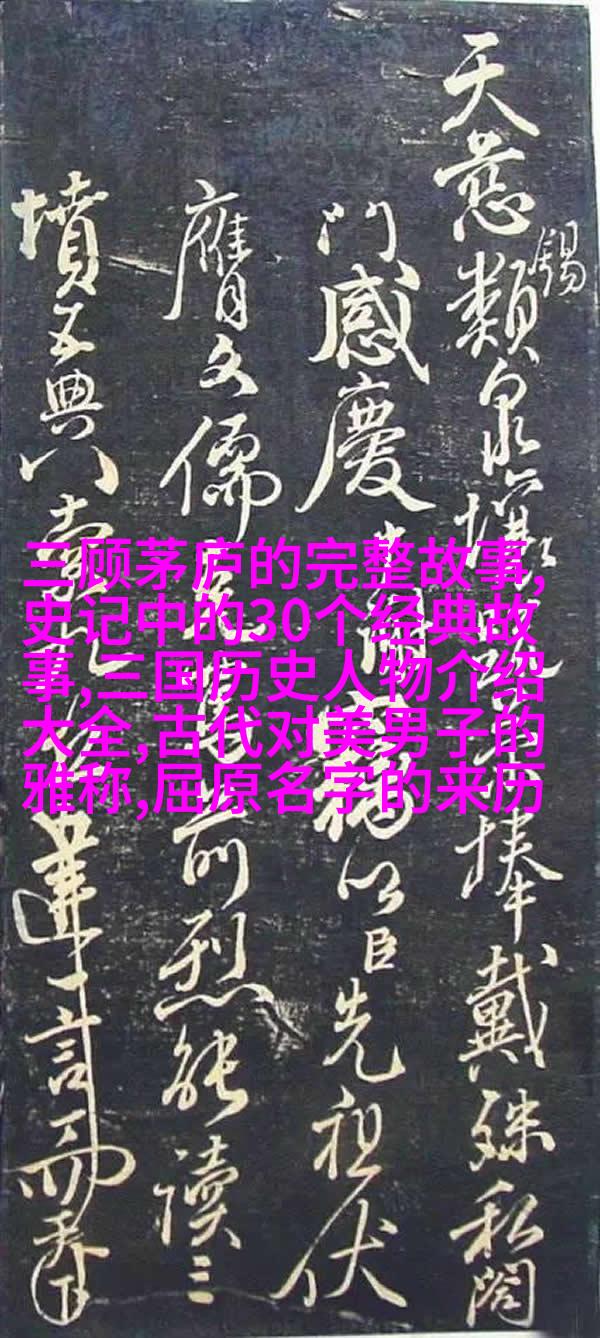 三顾茅庐的完整故事,
史记中的30个经典故
事,三国历史人物介绍
大全,古代对美男子的
雅称,屈原名字的来历
天慈類泉壤捧戴殊私閤
錫
門感慶以臣先祖伏
膺文儒前烈能讀三
墳五典八言